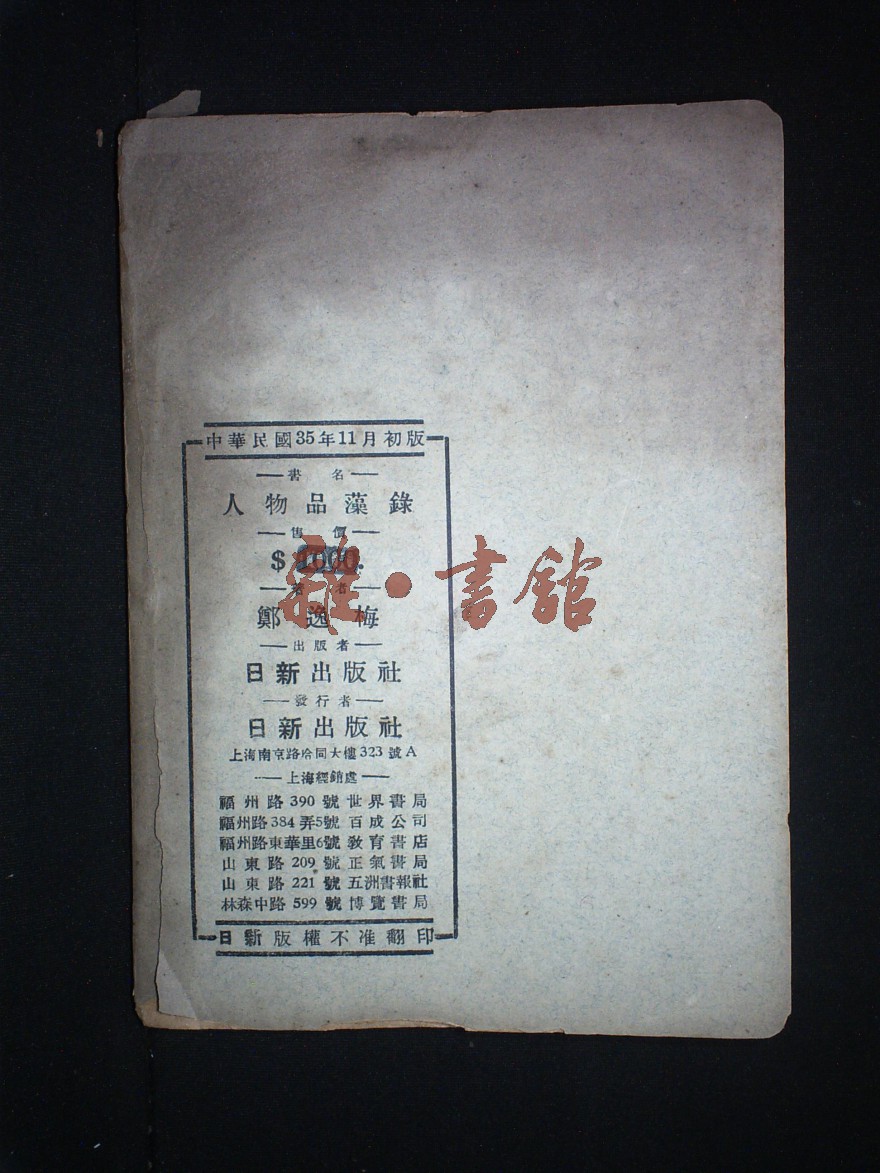 中華民國35年11月初版
書名
人物品藻錄
售價
$ 1000.
著者
鄭逸梅
出版者
日新出版社
發行者
日新出版社
上海南京路哈同大樓323號A
上海經銷處
福州路390號世界書局
福州路384弄5號百成公司
福州路東華里6號教育書店
山東路209號正氣書局
山東路221號五洲書報社
林森中路599號博覽書局
日新版權不准翻印
雜·書館